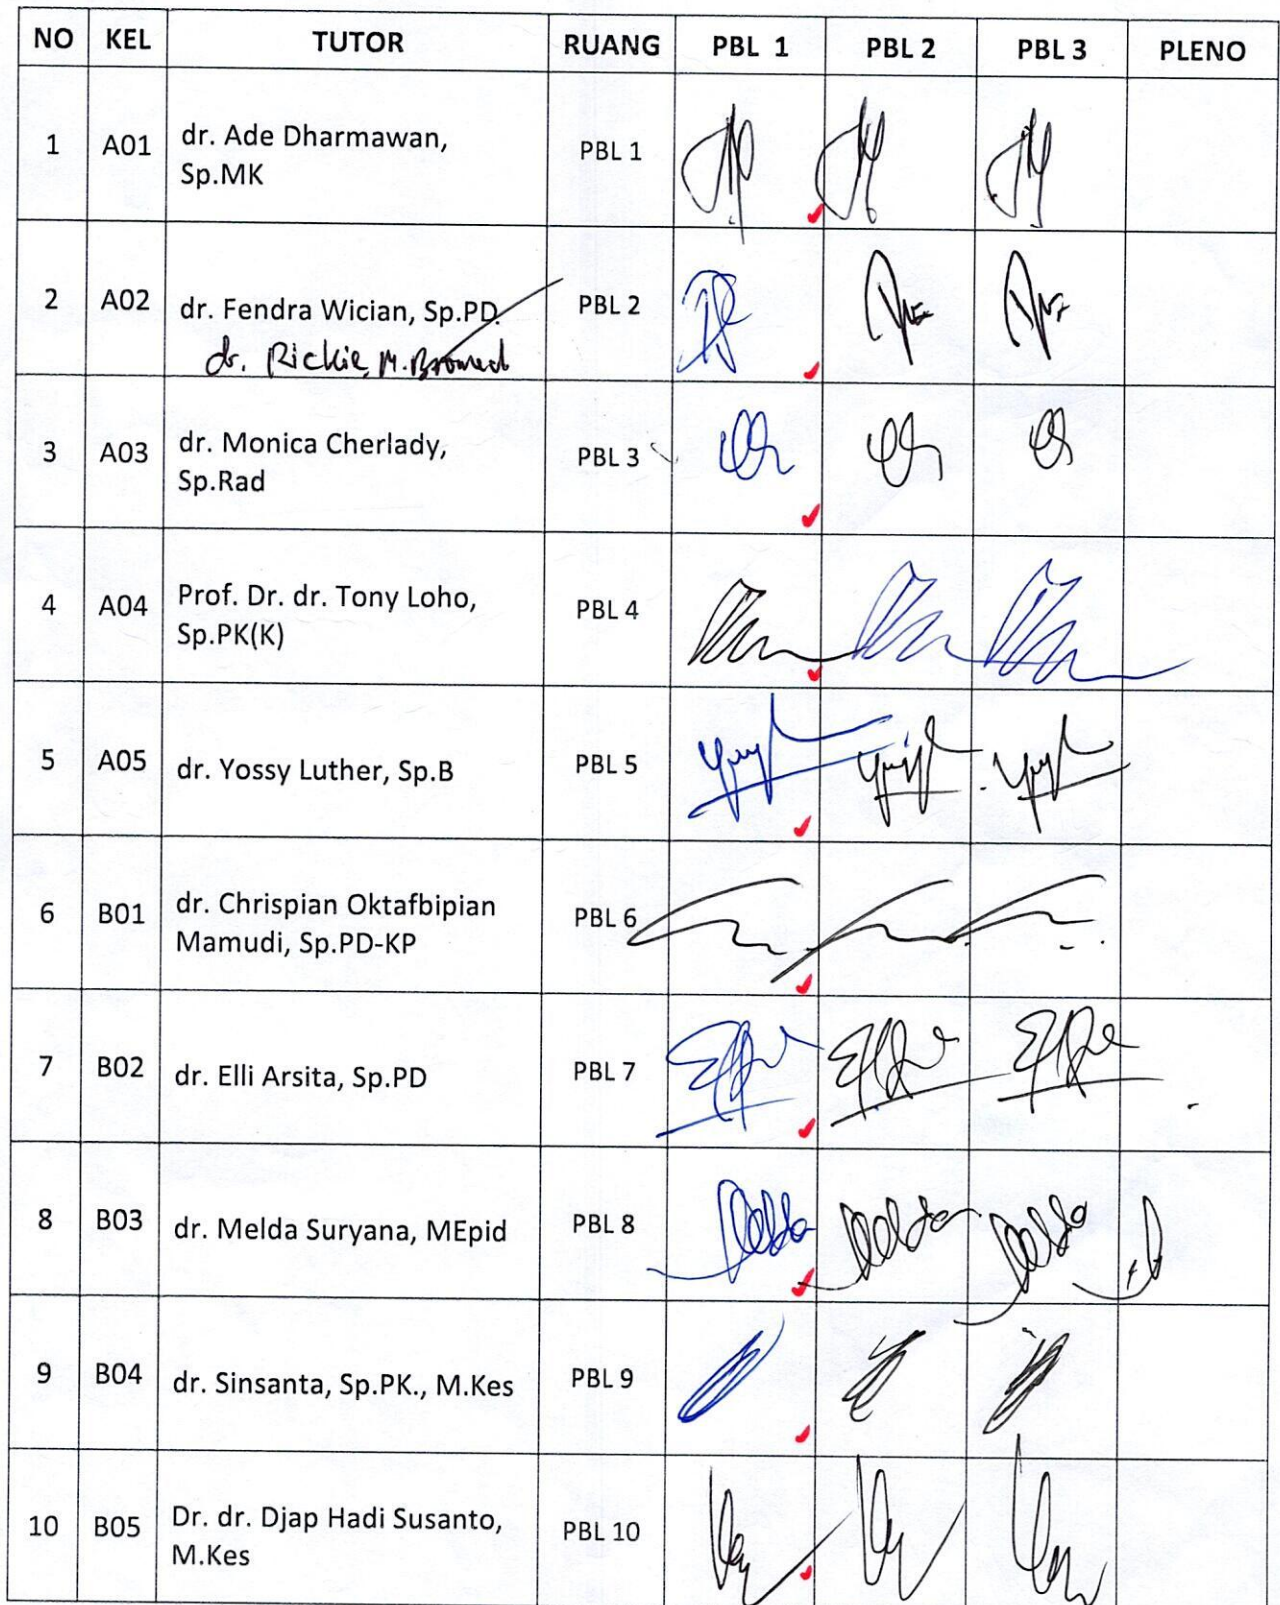 NO KEL TUTOR RUANG PBL 1 PBL 2 PBL 3 PLENO
1 A01 dr. Ade Dharmawan, PBL 1
Sp.MK
2 A02 dr. Fendra Wician, Sp.PD. PBL 2
dr. Rickie, M.Biomed
3 A03 dr. Monica Cherlady, PBL 3
Sp.Rad
4 A04 Prof. Dr. dr. Tony Loho, PBL 4
Sp.PK(K)
5 A05 dr. Yossy Luther, Sp.B PBL 5
6 B01 dr. Chrispian Oktafbipian PBL 6
Mamudi, Sp.PD-KP
7 B02 dr. Elli Arsita, Sp.PD PBL 7
8 B03 dr. Melda Suryana, MEpid PBL 8
9 B04 dr. Sinsanta, Sp.PK., M.Kes PBL 9
10 B05 Dr. dr. Djap Hadi Susanto, PBL 10
M.Kes